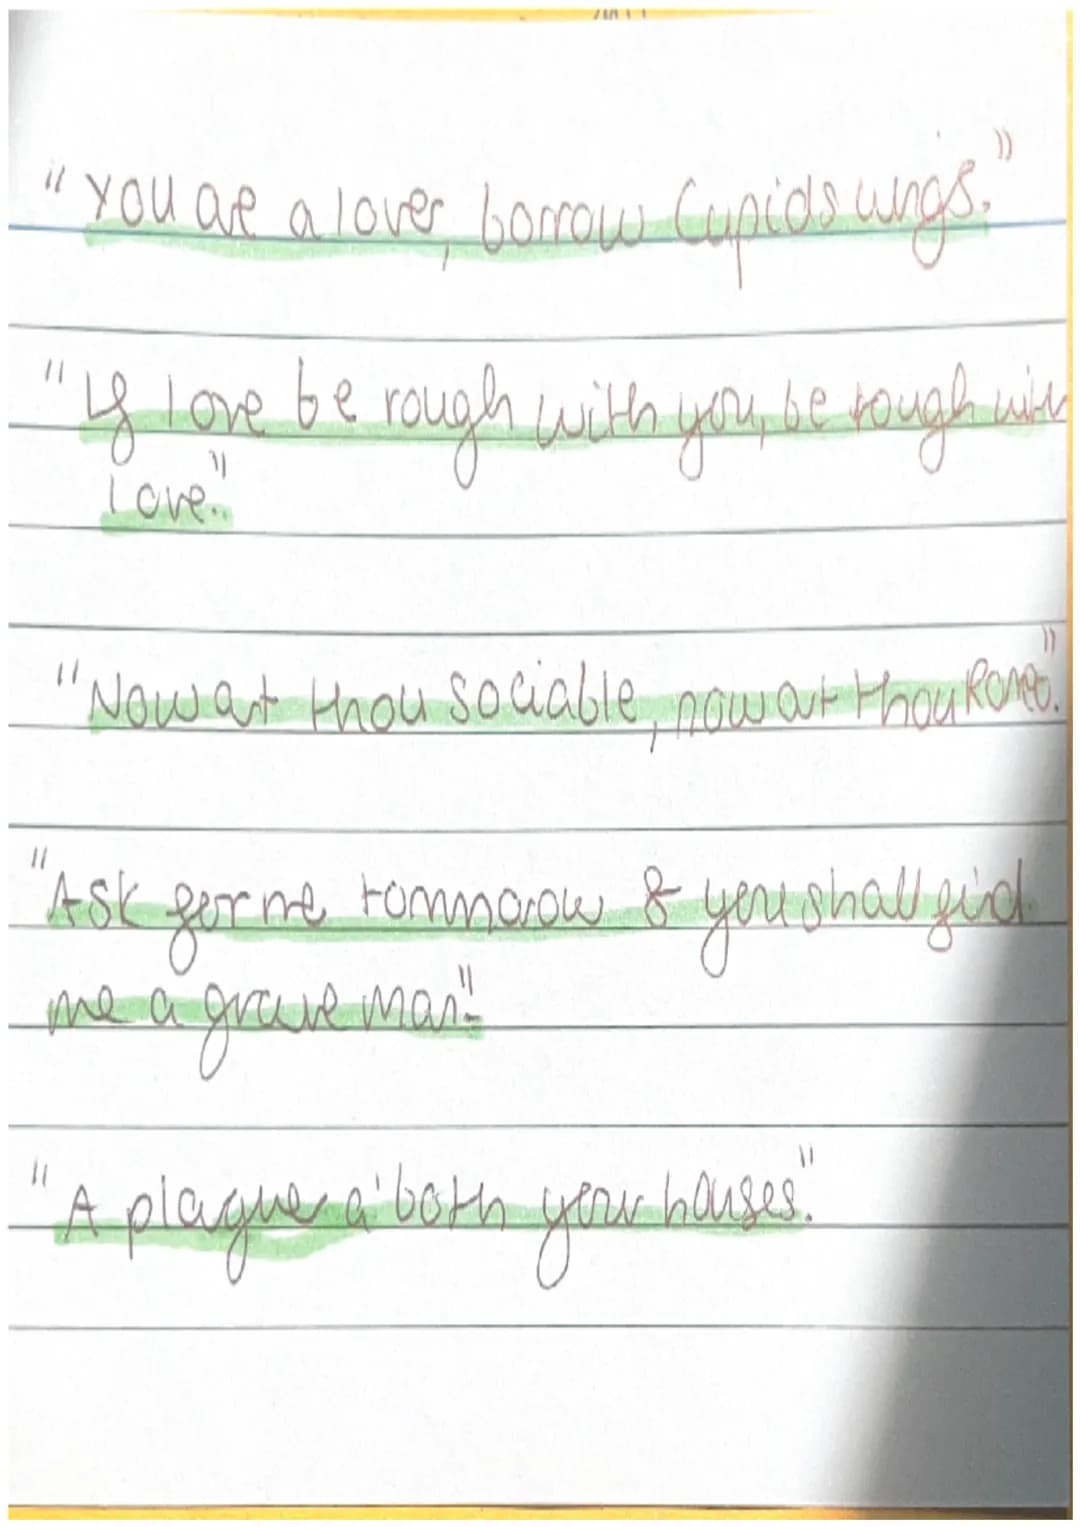 "You are a lover, borrow Cupids wings."
"If love be rough with you, be rough with
love."
"Now art thou sociable, now art thou Romeo."
"Ask for me tommorow & you shall find
me a grave man"
"A plague a' both your houses."